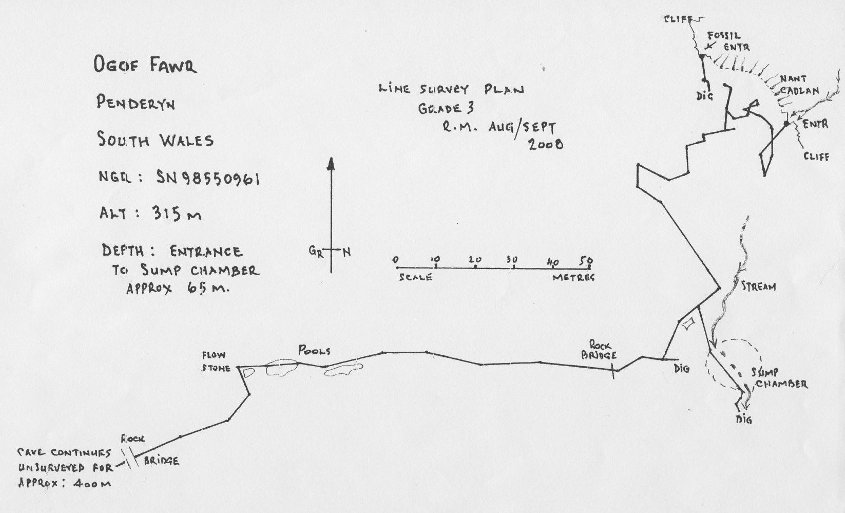 OGOF FAWR
PENDERYN
SOUTH WALES
NGR : SN 98550961
ALT : 315 M
DEPTH : ENTRANCE
TO SUMP CHAMBER
APPROX 65 M.
LINE SURVEY PLAN
GRADE 3
R.M. AUG/SEPT
2008
GR N
0 10 20 30 40 50
SCALE METRES
CLIFF
FOSSIL
ENTR
DIG
NANT
CADLAN
ENTR
CLIFF
STREAM
SUMP
CHAMBER
DIG
DIG
ROCK
BRIDGE
POOLS
FLOW
STONE
ROCK
BRIDGE
CAVE CONTINUES
UNSURVEYED FOR
APPROX : 400 M